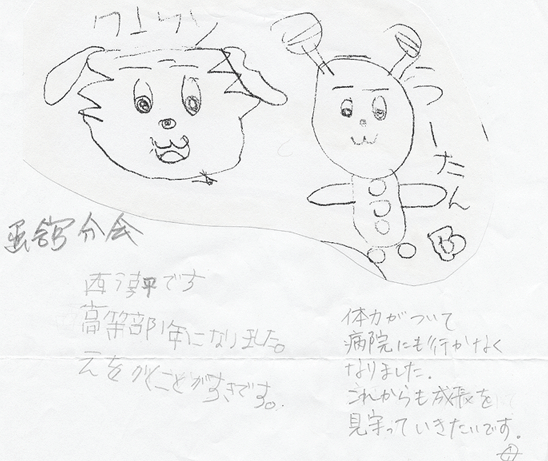 ワンワン
うーたん
分会
です
高等部1年になりました。
えをかくことがすきです。
体力がついて
病院にも行かなく
なりました。
これからも成長を
見守っていきたいです。